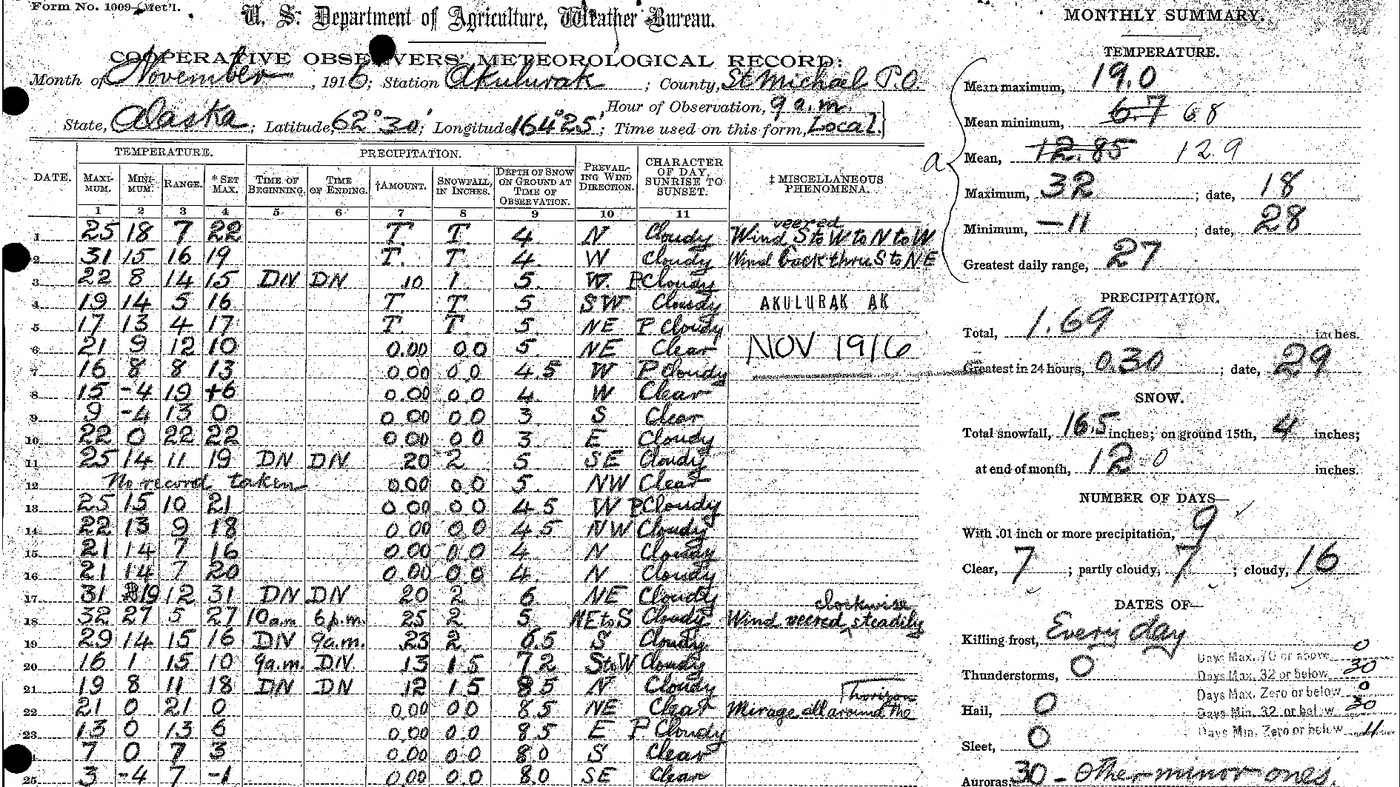 Form No. 1009—Met'l.
U. S. Department of Agriculture, Weather Bureau.
COOPERATIVE OBSERVERS' METEOROLOGICAL RECORD:
Month of November, 1916; Station Akulurak; County, St Michael P.O.
Hour of Observation, 9 a.m.
State, Alaska; Latitude, 62° 30'; Longitude 164° 25'; Time used on this form, Local.
TEMPERATURE. PRECIPITATION.
DATE. MAXIMUM. MINIMUM. RANGE. * SET MAX. TIME OF BEGINNING. TIME OF ENDING. †AMOUNT. SNOWFALL, IN INCHES. DEPTH OF SNOW ON GROUND AT TIME OF OBSERVATION. PREVAILING WIND DIRECTION. CHARACTER OF DAY, SUNRISE TO SUNSET. ‡ MISCELLANEOUS PHENOMENA.
1 2 3 4 5 6 7 8 9 10 11
1 25 18 7 22 T T 4 N Cloudy Wind veered S to W to N to W
2 31 15 16 19 T. T. 4 W Cloudy Wind back thru S to NE
3 22 8 14 15 DN DN 10 1 5. W. P Cloudy
4 19 14 5 16 T T 5 SW Cloudy AKULURAK AK
5 17 13 4 17 T T 5 NE P Cloudy
6 21 9 12 10 0.00 0.0 5 NE Clear NOV 1916
7 16 8 8 13 0.00 0.0 4.5 W P Cloudy
8 15 -4 19 +6 0.00 0.0 4 W Clear
9 9 -4 13 0 0.00 0.0 3 S Clear
10 22 0 22 22 0.00 0.0 3 E Cloudy
11 25 14 11 19 DN DN 20 2 5 SE Cloudy
12 No record taken 0.00 0.0 5 NW Clear
13 25 15 10 21 0.00 0.0 4.5 W P Cloudy
14 22 13 9 18 0.00 0.0 4.5 NW Cloudy
15 21 14 7 16 0.00 0.0 4 N Cloudy
16 21 14 7 20 0.00 0.0 4 N Cloudy
17 31 19 12 31 DN DN 20 2 6 NE Cloudy
18 32 27 5 27 10 a.m. 6 p.m. 25 2 5 NE to S Cloudy Wind veered clockwise steadily
19 29 14 15 16 DN 9 a.m. .23 2 6.5 S Cloudy
20 16 1 15 10 9 a.m. DN 13 1.5 7.2 S to W Cloudy
21 19 8 11 18 DN DN 12 1.5 8.5 N Cloudy
22 21 0 21 0 0.00 0.0 8.5 NE Clear Mirage all around the horizon
23 13 0 13 6 0.00 0.0 8.5 E P Cloudy
24 7 0 7 3 0.00 0.0 8.0 S Clear
25 3 -4 7 -1 0.00 0.0 8.0 SE Clear
MONTHLY SUMMARY.
TEMPERATURE.
Mean maximum, 19.0
Mean minimum, 6.7 6.8
a Mean, 12.85 12.9
Maximum, 32; date, 18
Minimum, —11; date, 28
Greatest daily range, 27
PRECIPITATION.
Total, 1.69 inches.
Greatest in 24 hours, 0.30; date, 29
SNOW.
Total snowfall, 16.5 inches; on ground 15th, 4 inches;
at end of month, 12 0 inches.
NUMBER OF DAYS—
With .01 inch or more precipitation, 9
Clear, 7; partly cloudy, 7; cloudy, 16
DATES OF—
Killing frost, Every day
Thunderstorms, 0
Hail, 0
Sleet, 0
Days Max. 70 or above 0
Days Max. 32 or below 30
Days Max. Zero or below 0
Days Min. 32 or below 30
Days Min. Zero or below 11
Auroras, 30 - other minor ones.